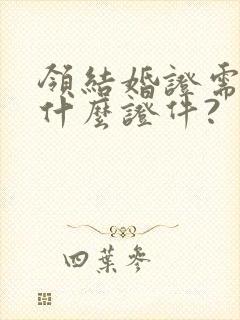 領結婚證需
什麼證件?
四葉參